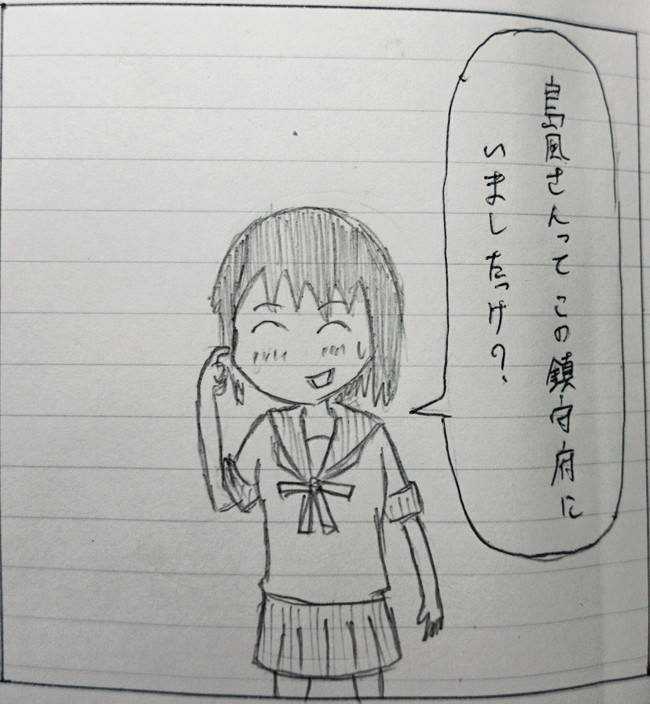 島風さんってこの鎮守府に
いましたっけ?